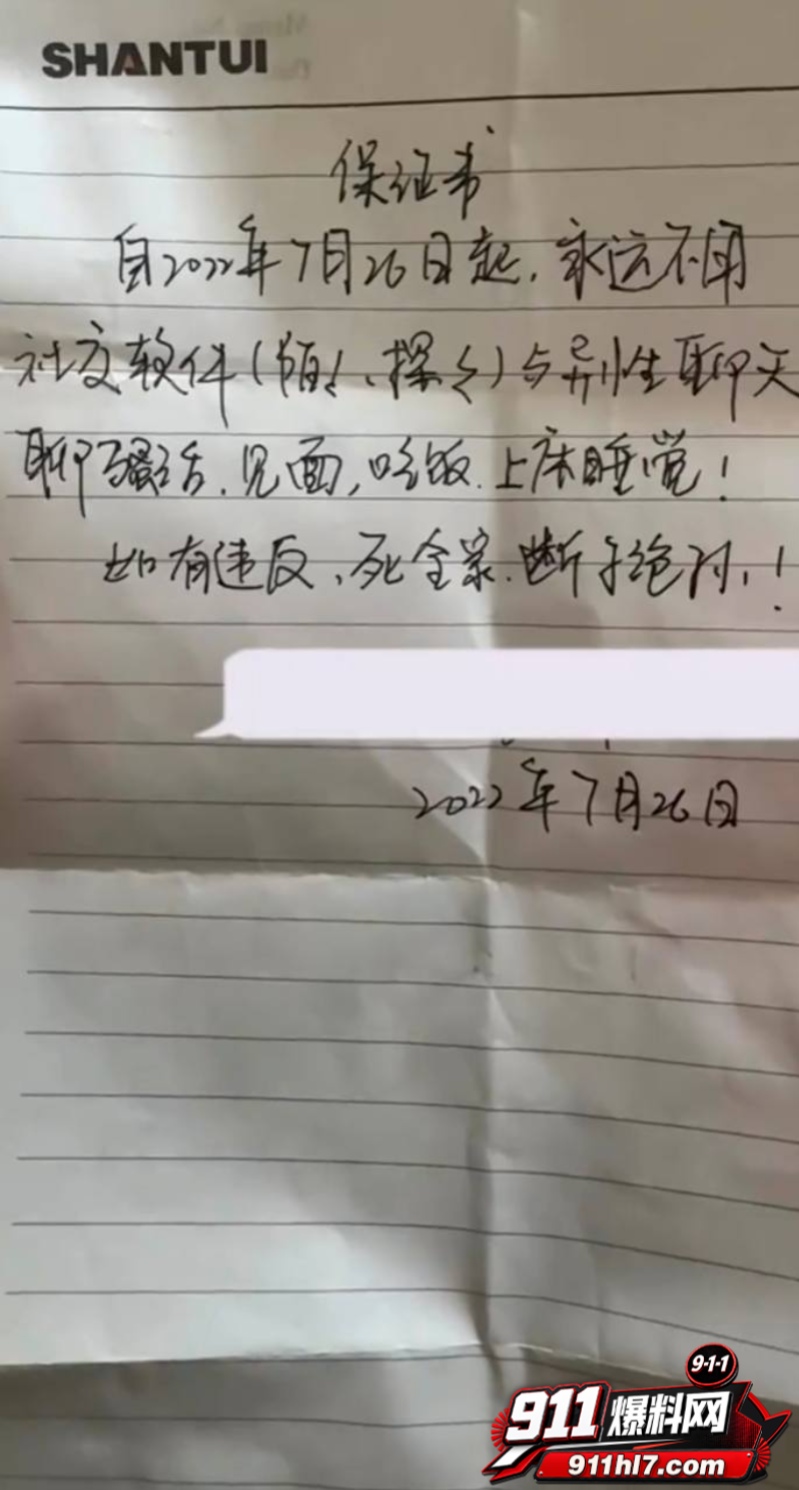 SHANTUI
保证书
自2022年7月26日起,永远不用
社交软件(陌々、探々)与异性聊天
聊骚话、见面,吃饭、上床睡觉!
如有违反、死全家、断子绝孙、!
2022年7月26日
9-1-1
911爆料网
911hl7.com